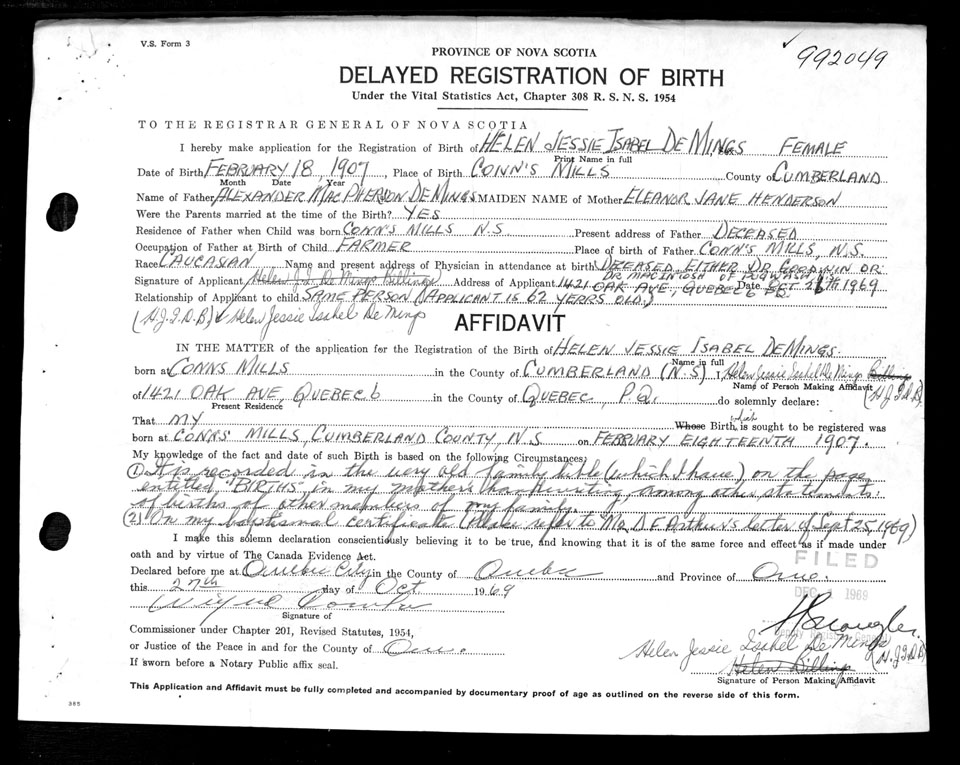 V.S. Form 3
✓ 992049
PROVINCE OF NOVA SCOTIA
DELAYED REGISTRATION OF BIRTH
Under the Vital Statistics Act, Chapter 308 R. S. N. S. 1954
TO THE REGISTRAR GENERAL OF NOVA SCOTIA
I hereby make application for the Registration of Birth of HELEN JESSIE ISABEL DE MINGS FEMALE
Print Name in full
Date of Birth FEBRUARY 18, 1907, Place of Birth CONN'S MILLS County of CUMBERLAND
Month Date Year
Name of Father ALEXANDER MACPHERSON DE MINGS MAIDEN NAME of Mother ELEANOR JANE HENDERSON
Were the Parents married at the time of the Birth? YES
Residence of Father when Child was born CONN'S MILLS N.S. Present address of Father DECEASED
Occupation of Father at Birth of Child FARMER Place of birth of Father CONN'S MILLS, N.S.
Race CAUCASIAN Name and present address of Physician in attendance at birth DECEASED EITHER DR GOODWIN OR
DR MACINTOSH OF PUGWASH N.S.
Signature of Applicant Helen J. I. De Mings Billings Address of Applicant 1421 OAK AVE, QUEBEC 6 P.Q. Date OCT 27TH 1969
Relationship of Applicant to child SAME PERSON (APPLICANT IS 62 YERRS OLD.)
(H.J.I.D.B) ✓ Helen Jessie Isabel De Mings
AFFIDAVIT
IN THE MATTER of the application for the Registration of the Birth of HELEN JESSIE ISABEL DEMINGS
Name in full
born at CONNS MILLS in the County of CUMBERLAND (N.S) I, Helen Jessie Isabel De Mings Billings
Name of Person Making Affidavit (H.J.I.D.B)
of 1421 OAK AVE, QUEBEC 6 in the County of QUEBEC, P.Q. do solemnly declare:
Present Residence
That MY Whose Birth which is sought to be registered was
born at CONNS' MILLS, CUMBERLAND COUNTY, N.S on FEBRUARY EIGHTEENTH 1907.
My knowledge of the fact and date of such Birth is based on the following Circumstances:
(1) It is recorded in the very old family bible (which I have) on the page
entitled, "BIRTHS" in my mother's handwriting, among other statements
of births of other members of my family.
(2) On my baptismal certificate (Please refer to Mr. D F Arthur's letter of Sept 25, 1969)
I make this solemn declaration conscientiously believing it to be true, and knowing that it is of the same force and effect as if made under
oath and by virtue of The Canada Evidence Act.
FILED
Declared before me at Quebec City in the County of Quebec and Province of Que.
this 27th day of Oct 1969
DEC 1969
Signature of
Deputy Registrar General
Commissioner under Chapter 201, Revised Statutes, 1954,
or Justice of the Peace in and for the County of Que.
If sworn before a Notary Public affix seal.
Helen Jessie Isabel De Mings
Helen Billings (H.J.I.D.B)
Signature of Person Making Affidavit
This Application and Affidavit must be fully completed and accompanied by documentary proof of age as outlined on the reverse side of this form.
385